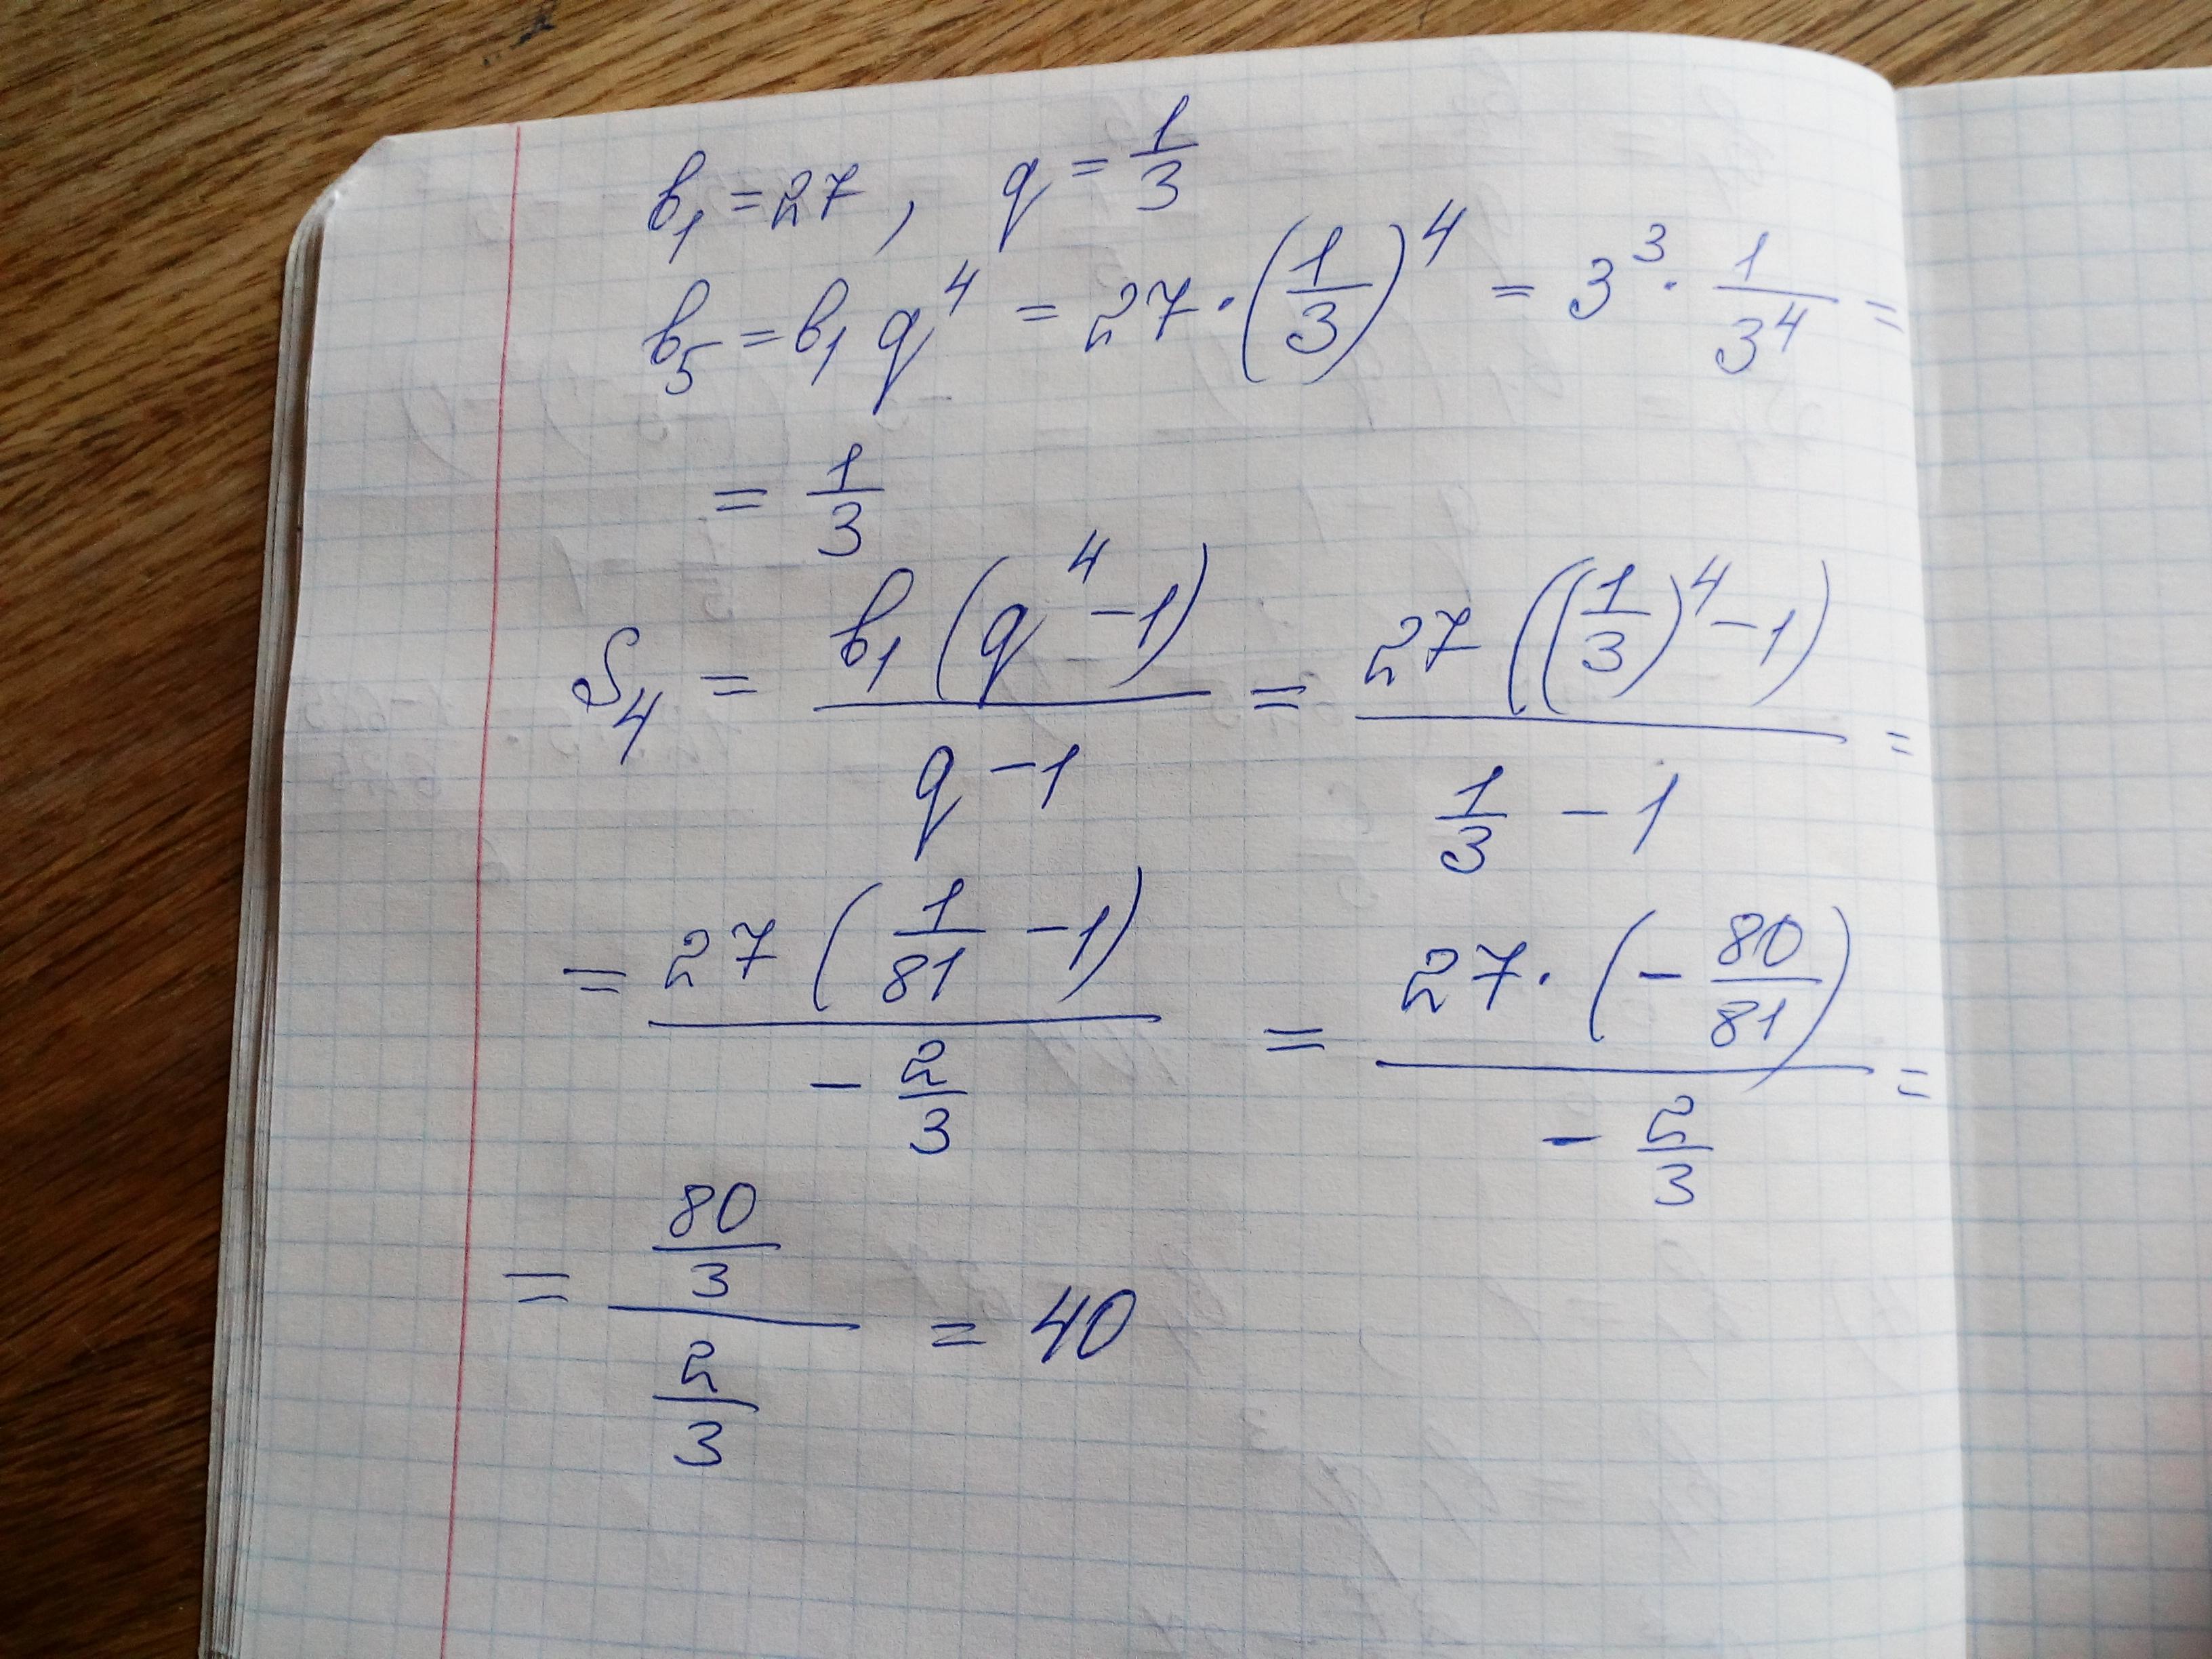 b₁ = 27, q = 1/3
b₅ = b₁ q⁴ = 27 · (1/3)⁴ = 3³ · 1/3⁴ =
= 1/3
S₄ = b₁(q⁴ - 1)/(q - 1) = 27((1/3)⁴ - 1)/(1/3 - 1) =
= 27(1/81 - 1)/(-2/3) = 27 · (-80/81)/(-2/3) =
= (80/3)/(2/3) = 40